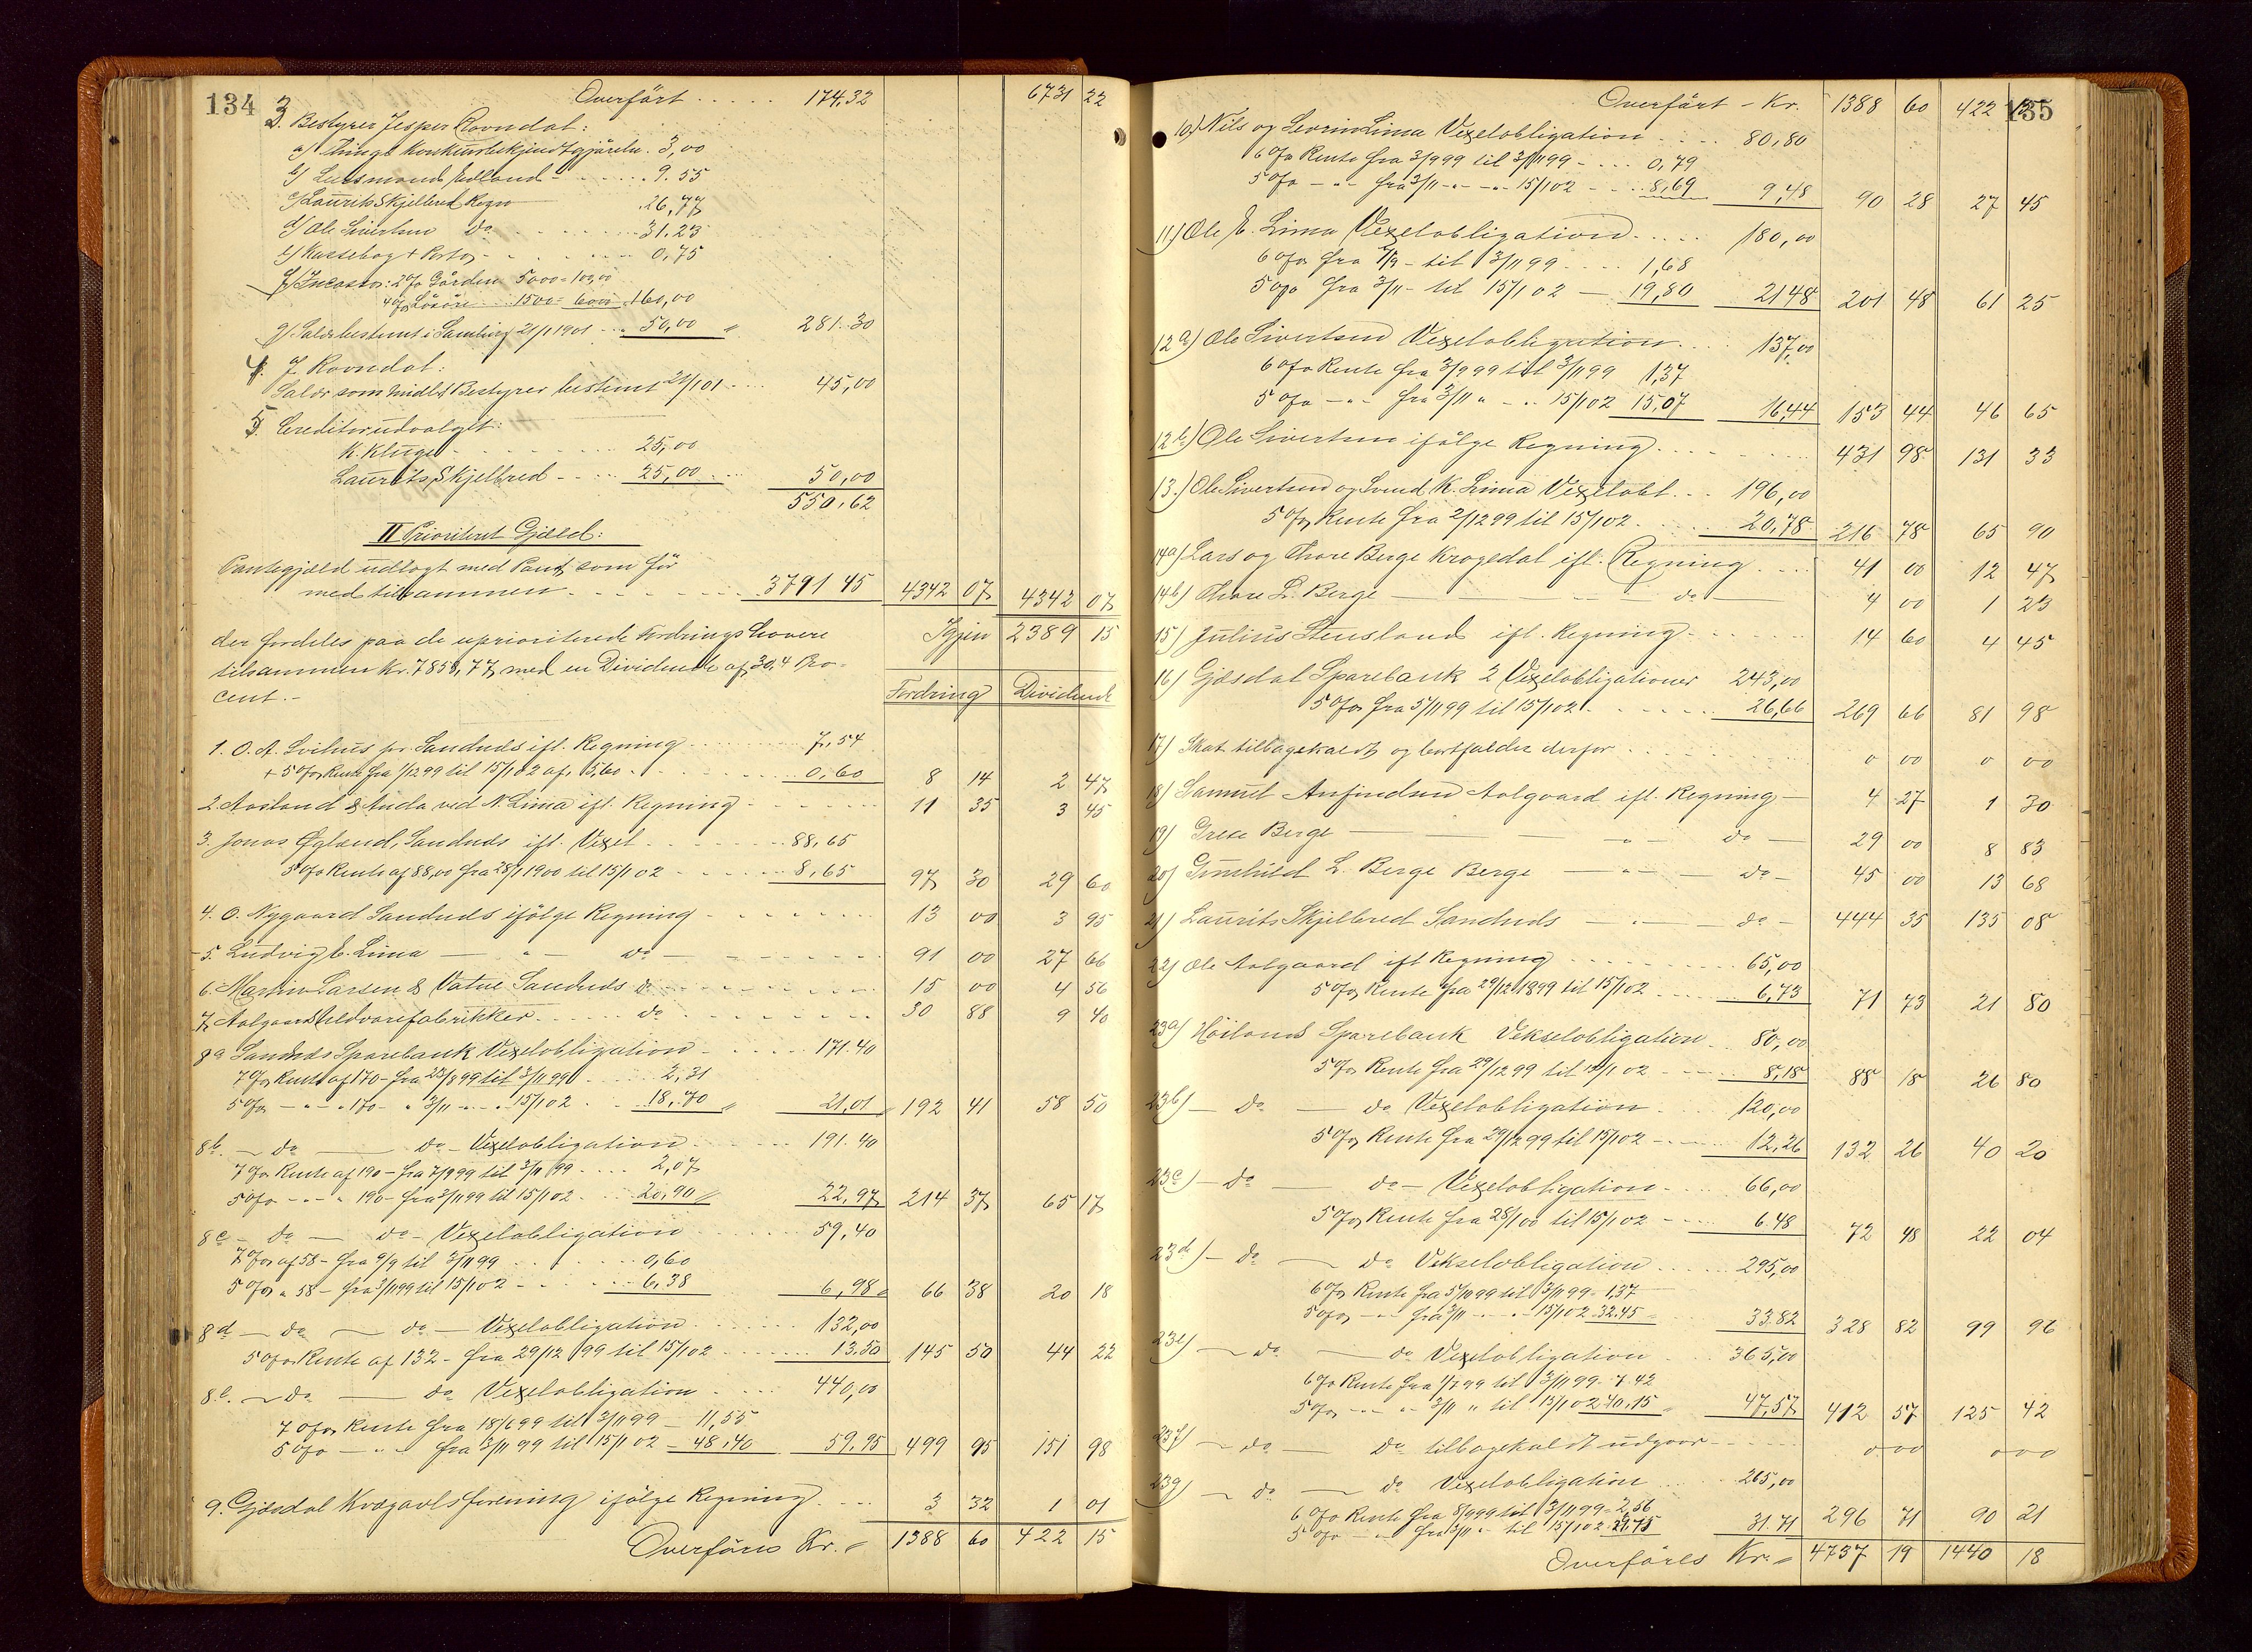 134
Overført ..... 174,32 6731 22
3. Bestyrer Jesper Ravndal:
a) Things Konkursbekjendtgjørelse. 3,00
b) Lensmand Edland ..... 9.55
c) Laurits Skjelbred Regn 26,77
d) Ole Sivertsen Do ..... 31.23
e) Kassebog + Porto ..... 0,75
f) Incasso: 2% Gården 5000 = 100,00
4% Løsøre 1500 = 60,00 160,00
g) Salær bestemt i Samling 21/1 1901 .. 50,00 " 281.30
4. J Ravndal:
Salær som midlt Bestyrer bestemt 21/1 01 .... 45,00
5. Creditorudvalget:
K. Kluge ...... 25,00
Laurits Skjelbred ..... 25,00 .... 50,00
550,62
II Prioriteret Gjæld:
Pantegjæld udlagt med Pant som før
med tilsammen ...... 3791 45 4342 07 4342 07
der fordeles paa de uprioriterede Fordringshavere Igjen 2389 15
tilsammen Kr. 7858,77 med en Dividende af 30,4 Pro-
cent.- Fordring Dividende
1. O. A. Svihus pr. Sandnds ifl. Regning ..... 7,54
+ 5% Rente fra 1/12 99 til 15/1 02 af 5,60 ..... 0,60 8 14 2 47
2. Aasland & Auda ved N. Lima ifl. Regning ..... 11 35 3 45
3. Jonas Øglænd, Sandnds ifl. Vexel ..... 88,65
5% Rente af 88,00 fra 28/1 1900 til 15/1 02 ..... 8,65 97 30 29 60
4. O. Nygaard Sandnds ifølge Regning ..... 13 00 3 95
5. Ludvig E. Lima — " — do — ..... 91 00 27 66
6. Martin Larsen & Vatne Sandnds do ..... 15 00 4 56
7. Aalgaards Uldvarefabrikker ..... do ..... 30 88 9 40
8a Sandnds Sparebank Vexelobligation ..... 171.40
7% Rente af 170 - fra 23/8 99 til 3/11 99 ..... 2,31
5% — " — " 170 - " 3/11 - " - " 15/1 02 .. 18,70 " 21,01 192 41 58 50
8b. — do — do - Vexelobligation ..... 191.40
7% Rente af 190 - fra 7/9 99 til 3/11 99 .... 2,07
5% - " - " 190 - fra 3/11 99 til 15/1 02 ... 20,90 " 22,97 214 37 65 17
8c - do — do - Vexelobligation ..... 59,40
7% af 58 - fra 9/9 til 3/11 99 ..... 0,60
5% " 58 - fra 3/11 99 til 15/1 02 ..... 6,38 6,98 66 38 20 18
8d — do — do — Vexelobligation ..... 132,00
5% Rente af 132 - fra 29/12 99 til 15/1 02 ..... 13.50 145 50 44 22
8e. — do — do Vexelobligation .... 440,00
7% Rente fra 18/6 99 til 3/11 99 — 11,55
5% — " - fra 3/11 99 til 15/1 02 — 48.40 59,95 499 95 151 98
9. Gjesdal Kvægavlsforening ifølge Regning .... 3 32 1 01
Overføres Kr. " 1388 60 422 15
135
Overført - Kr. 1388 60 422 15
10) Nils og Sevrin Lima Vexelobligation .... 80,80
6% Rente fra 3/9 99 til 3/11 99 - .... 0,79
5% — " - fra 3/11 - " - " 15/1 02 - ... 8,69 9,48 90 28 27 45
11) Ole E. Lima Vexelobligation ..... 180,00
6% fra 7/9 - til 3/11 99 .... 1,68
5% fra 3/11 - til 15/1 02 — 19,80 21 48 201 48 61 25
12a) Ole Sivertsen Vexelobligation .... 137,00
6% Rente fra 3/9 99 til 3/11 99 1,37
5% — " - fra 3/11 " - .. 15/1 02 15,07 16,44 153 44 46 65
12b) Ole Sivertsen ifølge Regning ...... 431 98 131 33
13.) Ole Sivertsen og Svend K. Lima Vexelobl. .. 196,00
5% Rente fra 2/12 99 til 15/1 02 ..... 20,78 216 78 65 90
14a) Lars og Thore Berge Kragedal ifl. Regning .... 41 00 12 47
14b) Thore L. Berge — — do — 4 00 1 23
15) Julius Stensland ifl. Regning ..... 14 60 4 45
16) Gjesdal Sparebank 2 Vexelobligationer 243,00
5% fra 5/11 99 til 15/1 02 ...... 26,66 269 66 81 98
17) Skat tilbagekaldt og bortfalder derfor ..... 0 00 0 00
18) Samuel Anfindsen Aalgaard ifl. Regning — 4 27 1 30
19) Grete Berge — — " — do — 29 00 8 83
20) Gunhild L. Berge Berge — " — do - 45 00 13 68
21) Laurits Skjelbred Sandnds — " — do - 444 35 135 08
22) Ole Aalgaard ifl Regning ...... 65,00
5% Rente fra 29/12 1899 til 15/1 02 ..... 6,73 71 73 21 80
23a) Høiland Sparebank Vekselobligation .. 80,00
5% Rente fra 29/12 99 til 15/1 02 - .... 8,18 88 18 26 80
23b) — do — do Vexelobligation .... 120,00
5% Rente fra 29/12 99 til 15/1 02 - .... 12,26 132 26 40 20
23c) — do — do — Vexelobligation - .. 66,00
5% Rente fra 28/1 00 til 15/1 02 - .... 6.48 72 48 22 04
23d) — do — do Vekselobligation ..... 295,00
6% Rente fra 5/10 99 til 3/11 99 - 1,37
5% - " - fra 3/11 - " - " - 15/1 02 32.45 33.82 328 82 99 96
23e) — do — do Vexelobligation .. 365,00
6% Rente fra 1/7 99 til 3/11 99 - 7.42
5% - " - " 3/11 " til 15/1 02 40.15 47,57 412 57 125 42
23f) — do — do tilbagekaldt udgaar ..... 0 00 0 00
23g) — do — do Vexelobligation .. 265,00
6% Rente fra 8/9 99 til 3/11 99 - 2,56
5% — " - fra 3/11 " - til 15/1 02 . 29,15 31.71 296 71 90 21
Overføres Kr. " 4737 19 1440 18